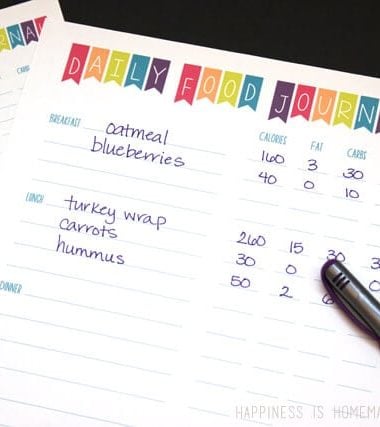 RNAL
CARBS
DAILY FOOD JOURNA
CALORIES FAT CARBS
BREAKFAST oatmeal 160 3 30
blueberries 40 0 10
LUNCH turkey wrap 260 15 30 3
carrots 30 0 0
hummus 50 2 6
DINNER
HAPPINESS IS HOMEMA